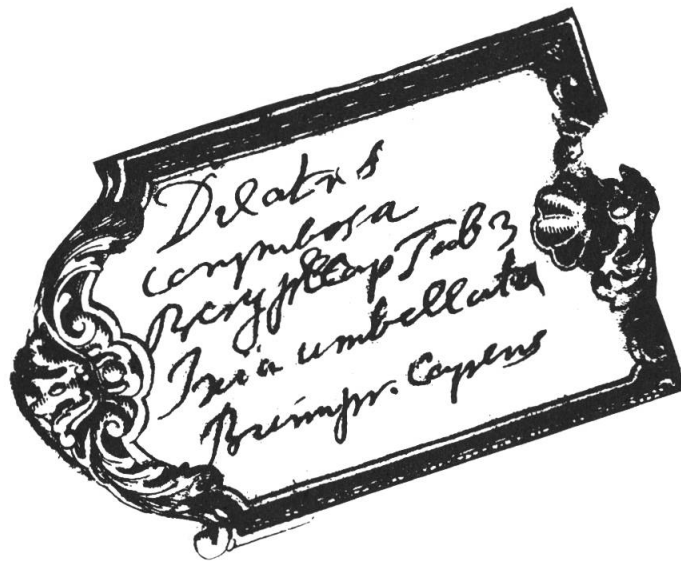 Dilatris
corymbosa
Berg pl Cap Tab 3
Ixia umbellata
Burm pr. Capens